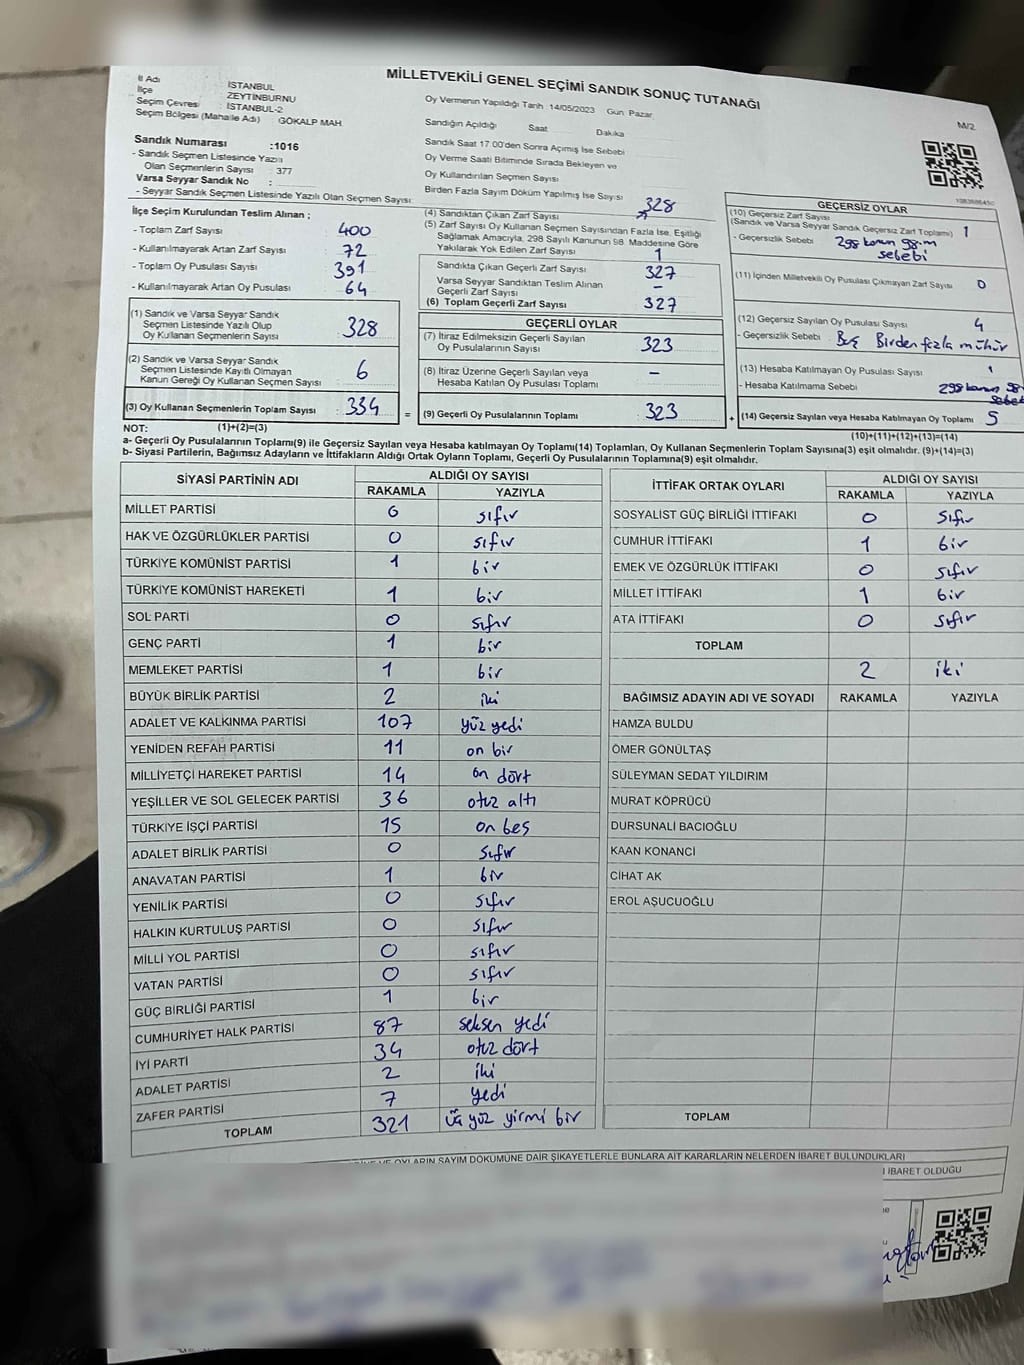 MİLLETVEKİLİ GENEL SEÇİMİ SANDIK SONUÇ TUTANAĞI
M/2
İl Adı : İSTANBUL
İlçe : ZEYTİNBURNU
Seçim Çevresi : İSTANBUL-2
Seçim Bölgesi (Mahalle Adı) : GÖKALP MAH.
Sandık Numarası :1016
- Sandık Seçmen Listesinde Yazılı
Olan Seçmenlerin Sayısı : 377
Varsa Seyyar Sandık No :
- Seyyar Sandık Seçmen Listesinde Yazılı Olan Seçmen Sayısı:
Oy Vermenin Yapıldığı Tarih :14/05/2023 Gün: Pazar
Sandığın Açıldığı Saat Dakika
Sandık Saat 17.00'den Sonra Açılmış İse Sebebi
Oy Verme Saati Bitiminde Sırada Bekleyen ve
Oy Kullandırılan Seçmen Sayısı
Birden Fazla Sayım Döküm Yapılmış İse Sayısı
İlçe Seçim Kurulundan Teslim Alınan ;
- Toplam Zarf Sayısı 400
- Kullanılmayarak Artan Zarf Sayısı 72
- Toplam Oy Pusulası Sayısı 391
- Kullanılmayarak Artan Oy Pusulası 64
(1) Sandık ve Varsa Seyyar Sandık
Seçmen Listesinde Yazılı Olup
Oy Kullanan Seçmenlerin Sayısı 328
(2) Sandık ve Varsa Seyyar Sandık
Seçmen Listesinde Kayıtlı Olmayan
Kanun Gereği Oy Kullanan Seçmen Sayısı 6
(3) Oy Kullanan Seçmenlerin Toplam Sayısı 334 =
(1)+(2)=(3)
(4) Sandıktan Çıkan Zarf Sayısı 328
(5) Zarf Sayısı Oy Kullanan Seçmen Sayısından Fazla İse, Eşitliği
Sağlamak Amacıyla, 298 Sayılı Kanunun 98. Maddesine Göre
Yakılarak Yok Edilen Zarf Sayısı 1
Sandıkta Çıkan Geçerli Zarf Sayısı 327
Varsa Seyyar Sandıktan Teslim Alınan
Geçerli Zarf Sayısı –
(6) Toplam Geçerli Zarf Sayısı 327
GEÇERLİ OYLAR
(7) İtiraz Edilmeksizin Geçerli Sayılan
Oy Pusulalarının Sayısı 323
(8) İtiraz Üzerine Geçerli Sayılan veya
Hesaba Katılan Oy Pusulası Toplamı –
(9) Geçerli Oy Pusulalarının Toplamı 323 +
GEÇERSİZ OYLAR
(10) Geçersiz Zarf Sayısı
(Sandık ve Varsa Seyyar Sandık Geçersiz Zarf Toplamı) 1
- Geçersizlik Sebebi 298 kanun 98.m
sebebi
(11) İçinden Milletvekili Oy Pusulası Çıkmayan Zarf Sayısı 0
(12) Geçersiz Sayılan Oy Pusulası Sayısı 4
- Geçersizlik Sebebi : Boş Birden fazla mühür
(13) Hesaba Katılmayan Oy Pusulası Sayısı 1
- Hesaba Katılmama Sebebi 298 kanun 98
sebebi
(14) Geçersiz Sayılan veya Hesaba Katılmayan Oy Toplamı 5
(10)+(11)+(12)+(13)=(14)
NOT:
a- Geçerli Oy Pusulalarının Toplamı(9) ile Geçersiz Sayılan veya Hesaba katılmayan Oy Toplamı(14) Toplamları, Oy Kullanan Seçmenlerin Toplam Sayısına(3) eşit olmalıdır. (9)+(14)=(3)
b- Siyasi Partilerin, Bağımsız Adayların ve İttifakların Aldığı Ortak Oyların Toplamı, Geçerli Oy Pusulalarının Toplamına(9) eşit olmalıdır.
SİYASİ PARTİNİN ADI ALDIĞI OY SAYISI
RAKAMLA YAZIYLA
MİLLET PARTİSİ 0 sıfır
HAK VE ÖZGÜRLÜKLER PARTİSİ 0 sıfır
TÜRKİYE KOMÜNİST PARTİSİ 1 bir
TÜRKİYE KOMÜNİST HAREKETİ 1 bir
SOL PARTİ 0 sıfır
GENÇ PARTİ 1 bir
MEMLEKET PARTİSİ 1 bir
BÜYÜK BİRLİK PARTİSİ 2 iki
ADALET VE KALKINMA PARTİSİ 107 yüz yedi
YENİDEN REFAH PARTİSİ 11 on bir
MİLLİYETÇİ HAREKET PARTİSİ 14 on dört
YEŞİLLER VE SOL GELECEK PARTİSİ 36 otuz altı
TÜRKİYE İŞÇİ PARTİSİ 15 on beş
ADALET BİRLİK PARTİSİ 0 sıfır
ANAVATAN PARTİSİ 1 bir
YENİLİK PARTİSİ 0 sıfır
HALKIN KURTULUŞ PARTİSİ 0 sıfır
MİLLİ YOL PARTİSİ 0 sıfır
VATAN PARTİSİ 0 sıfır
GÜÇ BİRLİĞİ PARTİSİ 1 bir
CUMHURİYET HALK PARTİSİ 87 seksen yedi
İYİ PARTİ 34 otuz dört
ADALET PARTİSİ 2 iki
ZAFER PARTİSİ 7 yedi
TOPLAM 321 üç yüz yirmi bir
İTTİFAK ORTAK OYLARI ALDIĞI OY SAYISI
RAKAMLA YAZIYLA
SOSYALİST GÜÇ BİRLİĞİ İTTİFAKI 0 sıfır
CUMHUR İTTİFAKI 1 bir
EMEK VE ÖZGÜRLÜK İTTİFAKI 0 sıfır
MİLLET İTTİFAKI 1 bir
ATA İTTİFAKI 0 sıfır
TOPLAM
2 iki
BAĞIMSIZ ADAYIN ADI VE SOYADI RAKAMLA YAZIYLA
HAMZA BULDU
ÖMER GÖNÜLTAŞ
SÜLEYMAN SEDAT YILDIRIM
MURAT KÖPRÜCÜ
DURSUNALİ BACIOĞLU
KAAN KONANCİ
CİHAT AK
EROL AŞUCUOĞLU
TOPLAM
OYLARIN SAYIM DÖKÜMÜNE DAİR ŞİKAYETLERLE BUNLARA AİT KARARLARIN NELERDEN İBARET BULUNDUKLARI
İBARET OLDUĞU